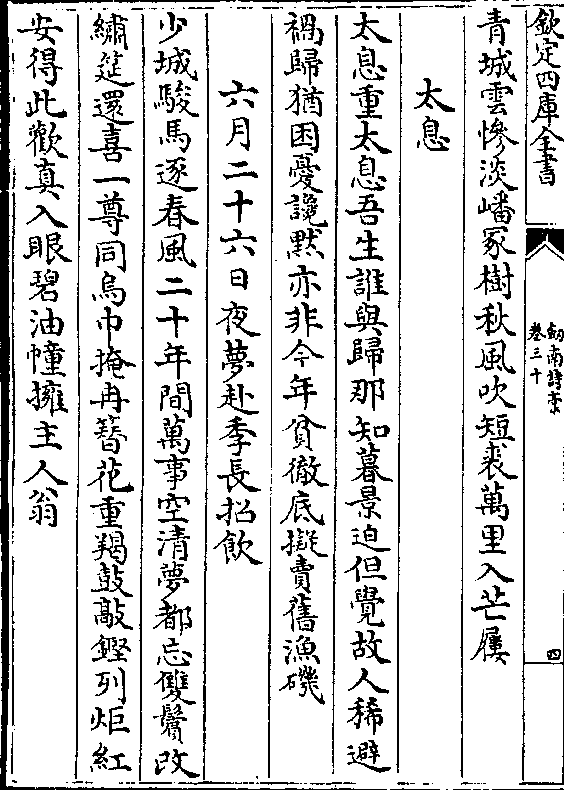 欽定四庫全書
劍南詩稾
卷三十
四
青城雲慘淡嶓冢樹秋風吹短裘萬里入芒屨
太息
太息重太息吾生誰與歸那知暮景迫但覺故人稀避
禍歸猶困憂讒黙亦非今年貧徹底擬賣舊漁磯
六月二十六日夜夢赴季長招飲
少城駿馬逐春風二十年間萬事空清夢都忘雙鬢改
繡筵還喜一尊同烏巾掩冉簪花重羯鼓敲鏗列炬紅
安得此歡真入眼碧油幢擁主人翁